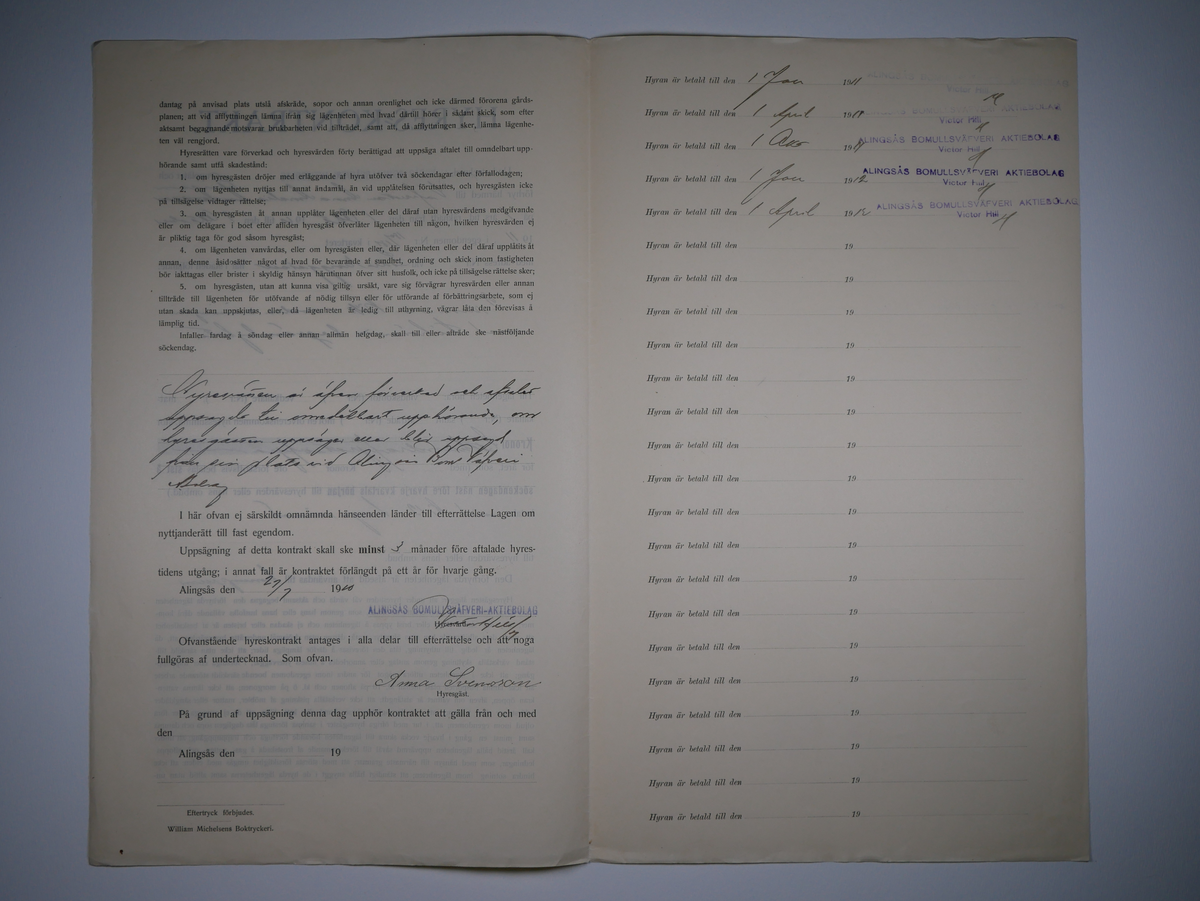 dantag på anvisad plats utslå afskräde, sopor och annan orenlighet och icke därmed förorena gårds-
planen; att vid afflyttningen lämna ifrån sig lägenheten med hvad därtill hörer i sådant skick, som efter
aktsamt begagnande motsvarar brukbarheten vid tillträdet, samt att, då afflyttningen sker, lämna lägenhe-
ten väl rengjord.
Hyresrätten vare förverkad och hyresvärden förty berättigad att uppsäga aftalet till omdelbart upp-
hörande samt utfå skadestånd:
1. om hyresgästen dröjer med erläggande af hyra utöfver två söckendagar efter förfallodagen;
2. om lägenheten nyttjas till annat ändamål, än vid upplåtelsen förutsattes, och hyresgästen icke
på tillsägelse vidtager rättelse;
3. om hyresgästen åt annan upplåter lägenheten eller del däraf utan hyresvärdens medgifvande
eller om delägare i boet efter afliden hyresgäst öfverlåter lägenheten till någon, hvilken hyresvärden ej
är pliktig taga för god såsom hyresgäst;
4. om lägenheten vanvårdas, eller om hyresgästen eller, där lägenheten eller del däraf upplåtits åt
annan, denne åsidosätter något af hvad för bevarande af sundhet, ordning och skick inom fastigheten
bör iakttagas eller brister i skyldig hänsyn härutinnan öfver sitt husfolk, och icke på tillsägelse rättelse sker;
5. om hyresgästen, utan att kunna visa giltig ursäkt, vare sig förvägrar hyresvärden eller annan
tillträde till lägenheten för utöfvande af nödig tillsyn eller för utförande af förbättringsarbete, som ej
utan skada kan uppskjutas, eller, då lägenheten är ledig till uthyrning, vägrar låta den förevisas å
lämplig tid.
Infaller fardag å söndag eller annan allmän helgdag, skall till eller afträde ske nästföljande
söckendag.
Hyresrätten är äfven förverkad och aftalet
uppsagdt till omedelbart upphörande, om
hyresgästen uppsäger eller blir uppsagd
från sin plats vid Alingsås Bom. Väfveri
Aktiebolag
I här ofvan ej särskildt omnämnda hänseenden länder till efterrättelse Lagen om
nyttjanderätt till fast egendom.
Uppsägning af detta kontrakt skall ske minst 3 månader före aftalade hyres-
tidens utgång; i annat fall är kontraktet förlängdt på ett år för hvarje gång.
Alingsås den 27/7 1910
ALINGSÅS BOMULLSVÄFVERI-AKTIEBOLAG
Victor Hill
Ofvanstående hyreskontrakt antages i alla delar till efterrättelse och att noga
fullgöras af undertecknad. Som ofvan.
Anna Svensson
Hyresgäst.
På grund af uppsägning denna dag upphör kontraktet att gälla från och med
den
Alingsås den 19
Eftertryck förbjudes.
William Michelsens Boktryckeri.
Hyran är betald till den 1 Jan 1911 ALINGSÅS
Victor Hill
Hyran är betald till den 1 April 1911 BOMULLSVÄFVERI AKTIEBOLAG
Victor Hill
Hyran är betald till den 1 1911 ALINGSÅS BOMULLSVÄFVERI AKTIEBOLAG
Victor Hill
Hyran är betald till den 1 Jan 1912 ALINGSÅS BOMULLSVÄFVERI AKTIEBOLAG
Victor Hill
Hyran är betald till den 1 April 1912 ALINGSÅS BOMULLSVÄFVERI AKTIEBOLAG
Victor Hill
Hyran är betald till den 19
Hyran är betald till den 19
Hyran är betald till den 19
Hyran är betald till den 19
Hyran är betald till den 19
Hyran är betald till den 19
Hyran är betald till den 19
Hyran är betald till den 19
Hyran är betald till den 19
Hyran är betald till den 19
Hyran är betald till den 19
Hyran är betald till den 19
Hyran är betald till den 19
Hyran är betald till den 19
Hyran är betald till den 19
Hyran är betald till den 19
Hyran är betald till den 19
Hyran är betald till den 19